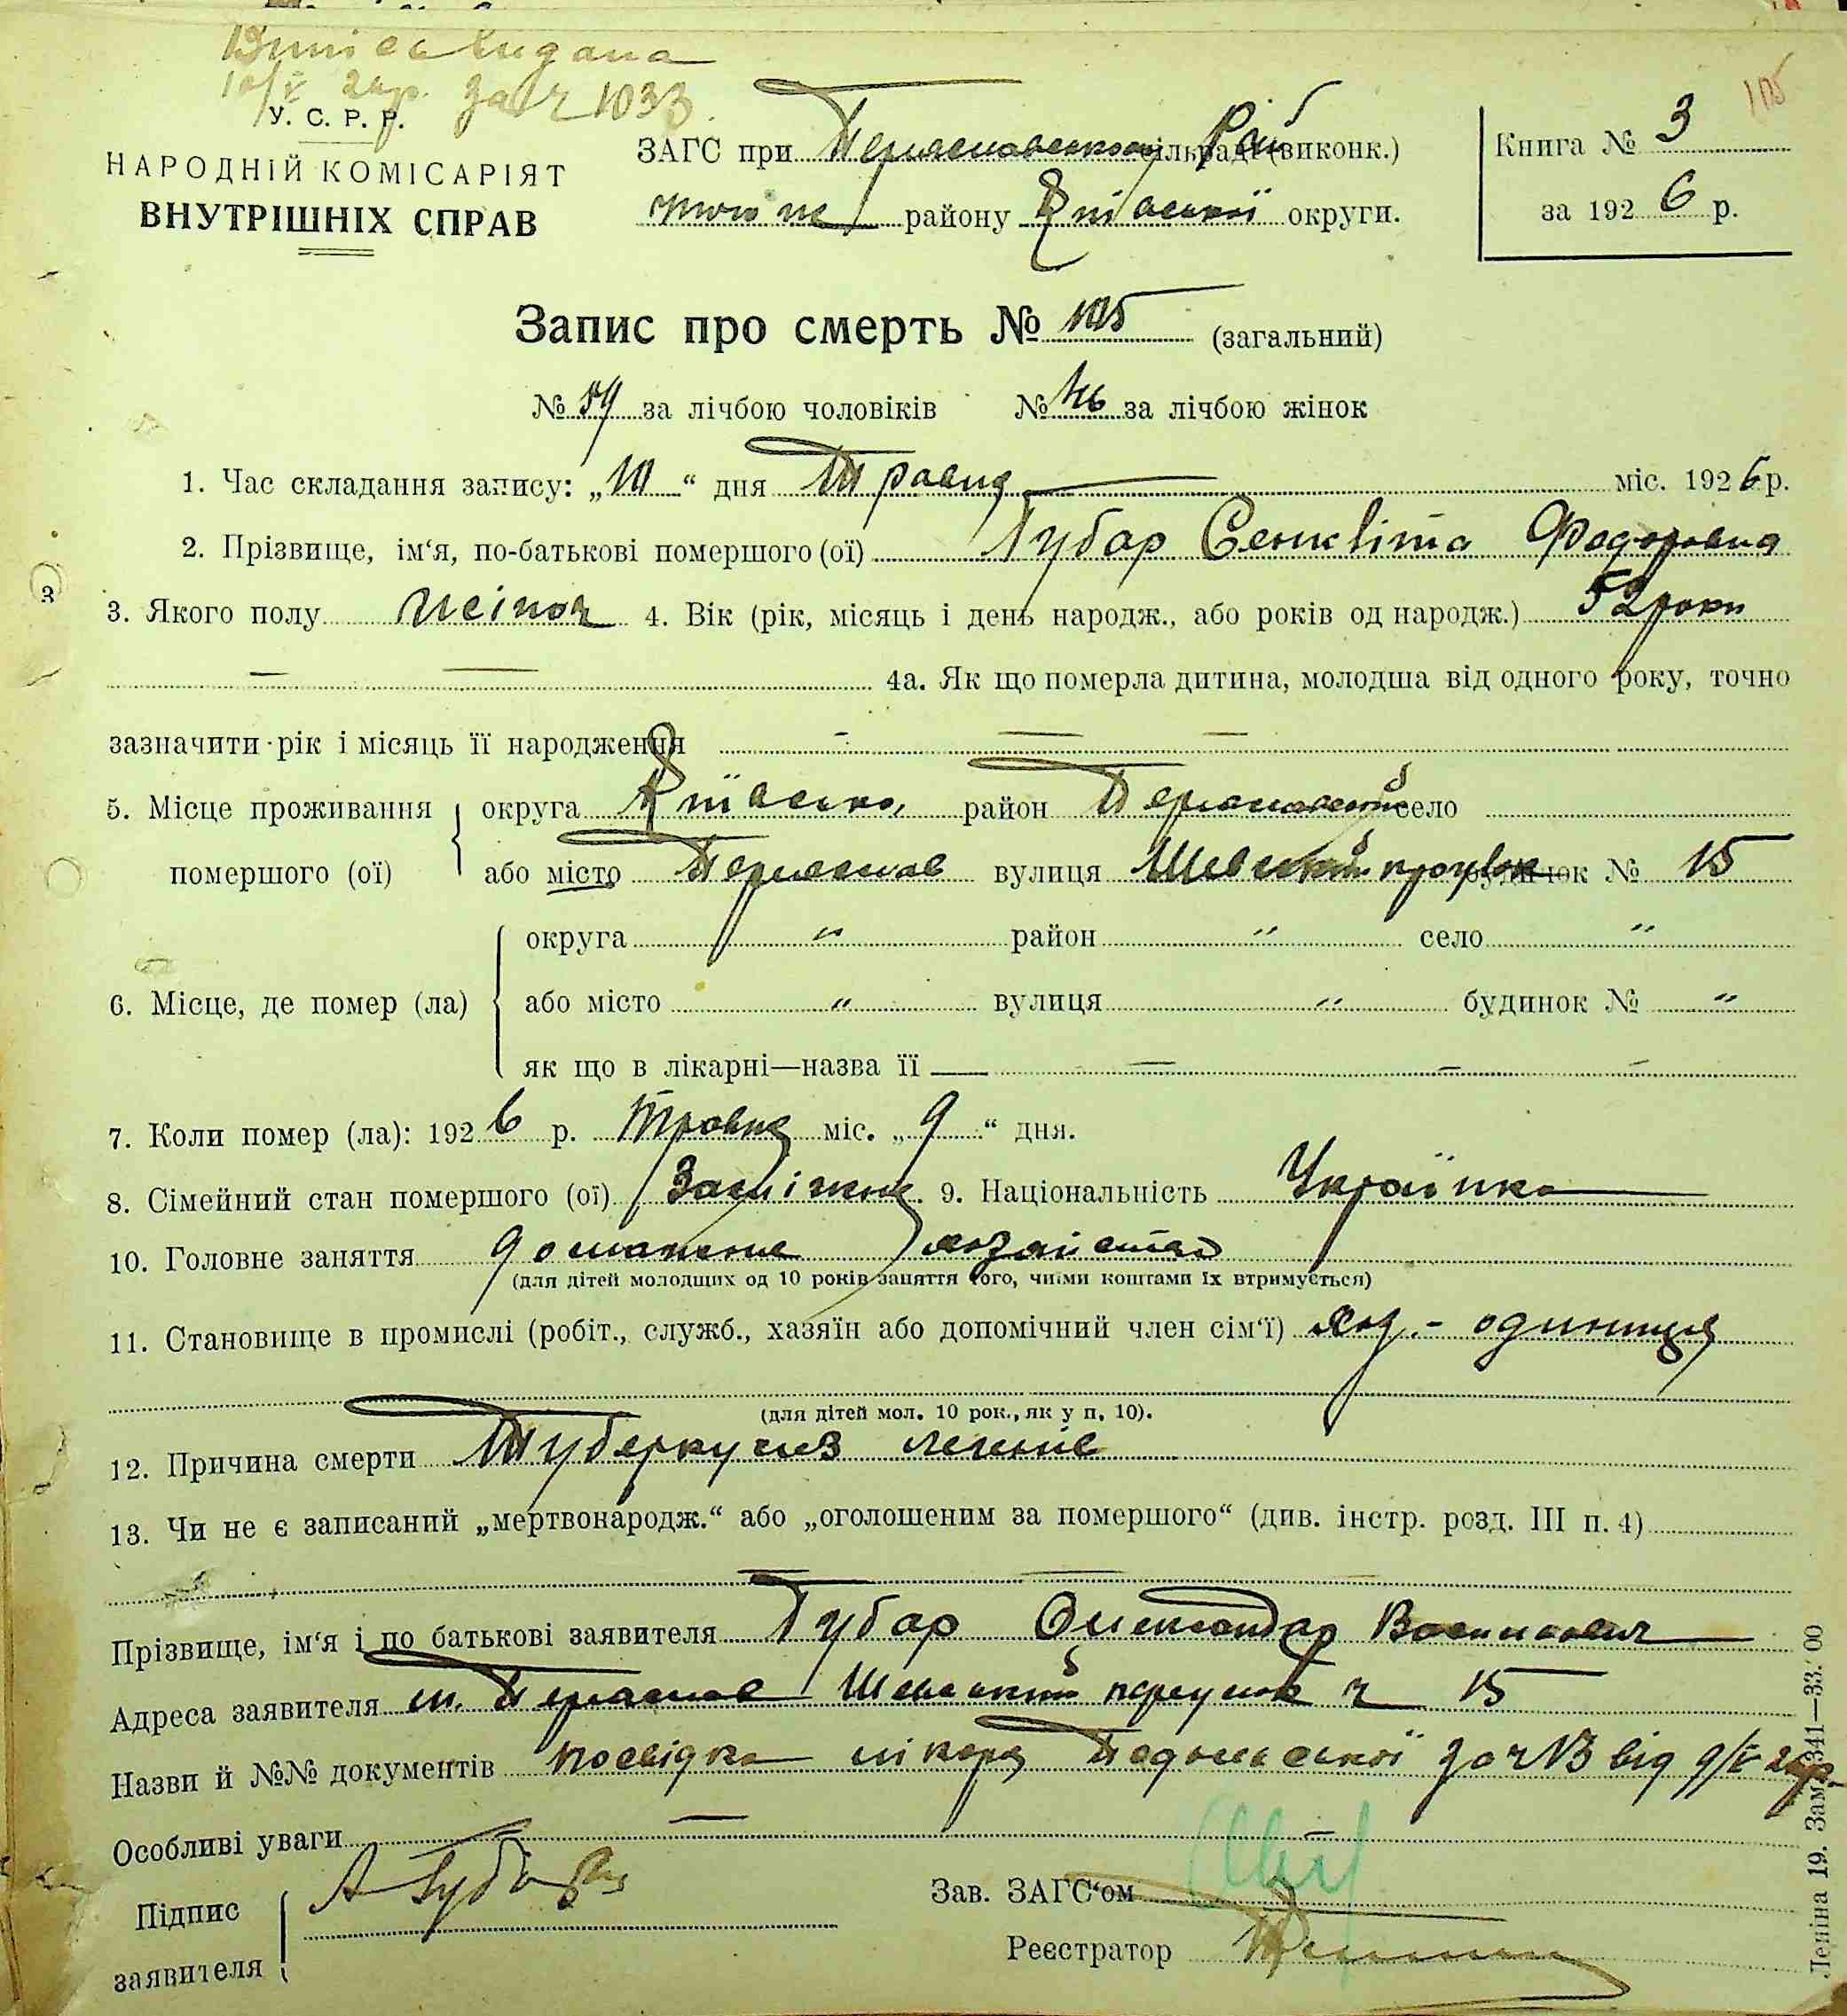 Випис видана
10/V 26 р. за ч 1033
У. С. Р. Р.
НАРОДНІЙ КОМІСАРІЯТ
ВНУТРІШНІХ СПРАВ
ЗАГС при Переяславському сільраді (виконк.) Рай
району Київської округи.
Книга № 3
за 1926 р.
105
Запис про смерть № 105 (загальний)
№ 59 за лічбою чоловіків № 46 за лічбою жінок
1. Час складання запису: „10“ дня Травня міс. 1926 р.
2. Прізвище, ім‘я, по-батькові помершого (ої) Губар Федоровна
3. Якого полу жіноч 4. Вік (рік, місяць і день народж., або років од народж.) 52 роки
4а. Як що померла дитина, молодша від одного року, точно
зазначити рік і місяць її народження
5. Місце проживання помершого (ої) округа Київська район Переяславський село
або місто Переяслав вулиця провулок будинок № 15
6. Місце, де помер (ла) округа " район " село "
або місто " вулиця " будинок № "
як що в лікарні—назва її —
7. Коли помер (ла): 1926 р. Травня міс. „9“ дня.
8. Сімейний стан помершого (ої) Заміжня 9. Національність Українка
10. Головне заняття домашнє хозяйство
(для дітей молодших од 10 років заняття того, чиїми коштами їх втримується)
11. Становище в промислі (робіт., служб., хазяїн або допомічний член сім‘ї) хоз. - одиниця
(для дітей мол. 10 рок., як у п. 10).
12. Причина смерти Туберкульоз легенів
13. Чи не є записаний „мертвонародж.“ або „оголошеним за помершого“ (див. інстр. розд. III п. 4)
Прізвище, ім‘я і по батькові заявителя Губар Олександар
Адреса заявителя м. Переяслав ч 15
Назви й №№ документів посвідка лікаря за ч 13 від 9/V 26 р.
Особливі уваги
Підпис заявителя А Губар
Зав. ЗАГС‘ом
Реєстратор
Леніна 19. Зам. 341—33.